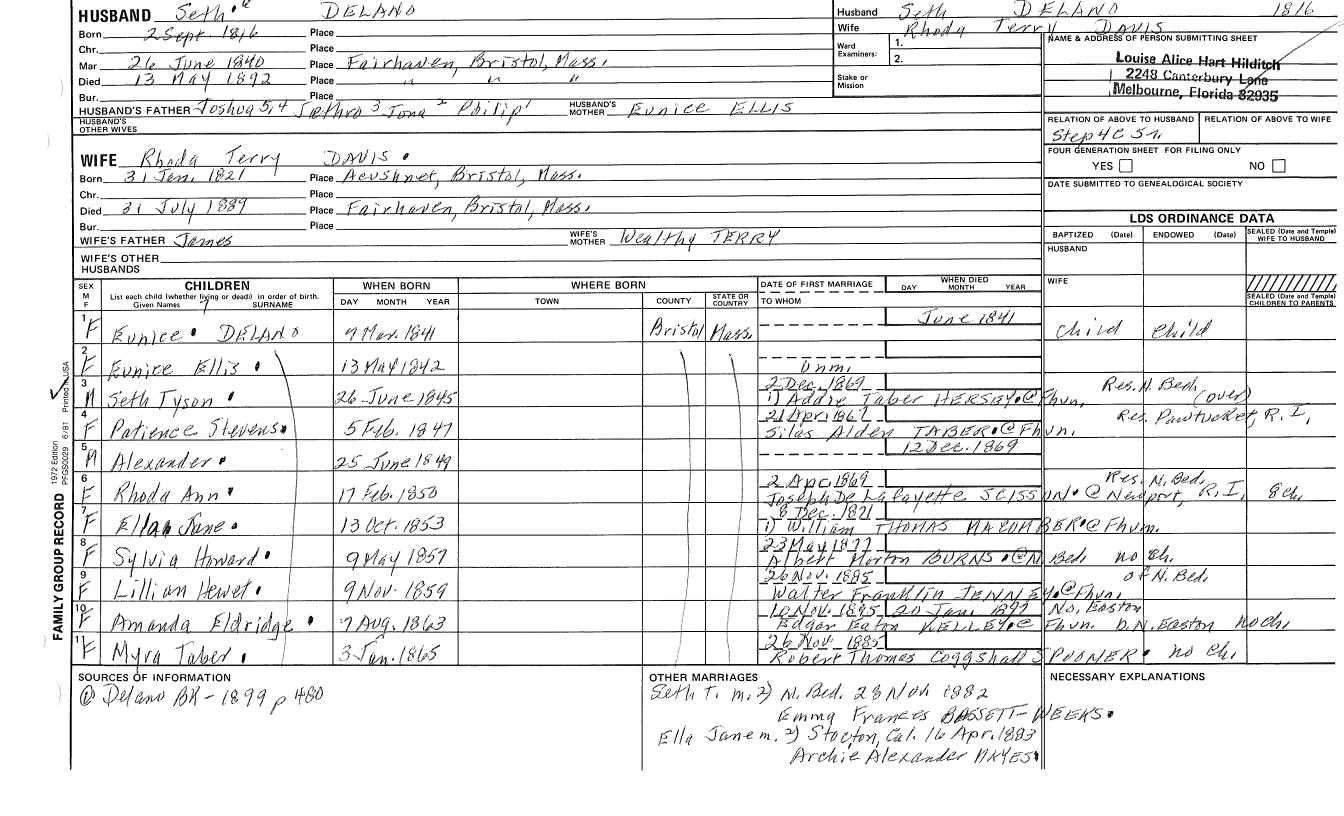 HUSBAND Seth⁶ DELANO
Born 2 Sept. 1816 Place
Chr. Place
Mar 26 June 1840 Place Fairhaven, Bristol, Mass.
Died 13 May 1892 Place " " "
Bur. Place
HUSBAND'S FATHER Joshua 5,4 Jethro 3 Jona 2 Philip 1 HUSBAND'S MOTHER Eunice ELLIS
HUSBAND'S OTHER WIVES
Husband Seth DELANO 1816
Wife Rhoda Terry DAVIS
Ward Examiners: 1.
2.
Stake or Mission
NAME & ADDRESS OF PERSON SUBMITTING SHEET
Louise Alice Hart Hilditch
2248 Canterbury Lane
Melbourne, Florida 32935
RELATION OF ABOVE TO HUSBAND RELATION OF ABOVE TO WIFE
Step 4C 5r.
FOUR GENERATION SHEET FOR FILING ONLY
YES NO
DATE SUBMITTED TO GENEALOGICAL SOCIETY
WIFE Rhoda Terry DAVIS
Born 31 Jan. 1821 Place Acushnet, Bristol, Mass.
Chr. Place
Died 31 July 1889 Place Fairhaven, Bristol, Mass.
Bur. Place
WIFE'S FATHER James WIFE'S MOTHER Wealthy TERRY
WIFE'S OTHER HUSBANDS
LDS ORDINANCE DATA
BAPTIZED (Date) ENDOWED (Date) SEALED (Date and Temple) WIFE TO HUSBAND
HUSBAND
WIFE
SEALED (Date and Temple) CHILDREN TO PARENTS
SEX M F CHILDREN WHEN BORN WHERE BORN DATE OF FIRST MARRIAGE WHEN DIED
List each child (whether living or dead) in order of birth.
Given Names 7 SURNAME DAY MONTH YEAR TOWN COUNTY STATE OR COUNTRY TO WHOM DAY MONTH YEAR
1 F Eunice DELANO 9 Mar. 1841 Bristol Mass. June 1841 child child
2 F Eunice Ellis 13 May 1842 Unm.
3 M Seth Tyson 26 June 1845 2 Dec. 1869 Res. N. Bed.
1) Addie Taber HERSEY @ Fhvn. (over)
4 F Patience Stevens 5 Feb. 1847 21 Apr. 1867 Res. Pawtucket, R.I.
Silas Alden TABER @ Fhvn.
5 M Alexander 25 June 1849 12 Dec. 1869
6 F Rhoda Ann 17 Feb. 1850 2 Apr. 1869 Res. N. Bed.
Joseph De Lafayette SCISSON @ Newport, R.I. 8 ch.
7 F Ella Jane 13 Oct. 1853 8 Dec. 1871
1) William THOMAS MACOMBER @ Fhvn.
8 F Sylvia Howard 9 May 1857 23 May 1877
Albert Morton BURNS @ N. Bed. no ch.
9 F Lillian Hewet 9 Nov. 1859 26 Nov. 1885 of N. Bed.
Walter Franklin JENNEY @ Fhvn.
10 F Amanda Eldridge 7 Aug. 1863 16 Nov. 1895 20 Jan. 1897 No. Easton
Edgar Eaton KELLEY @ Fhvn. D. N. Easton no ch.
11 F Myra Taber 3 Jan. 1865 26 Nov. 1885
Robert Thomas Coggshall SPOONER no ch.
FAMILY GROUP RECORD 1972 Edition PFGS0029 6/81 Printed in USA
SOURCES OF INFORMATION
@ Delano BK - 1899 p 480
OTHER MARRIAGES
Seth T. m. 2) N. Bed. 23 Nov 1882
Emma Frances BASSETT-WEEKS
Ella Jane m. 2) Stocton, Cal. 16 Apr. 1883
Archie Alexander
NECESSARY EXPLANATIONS